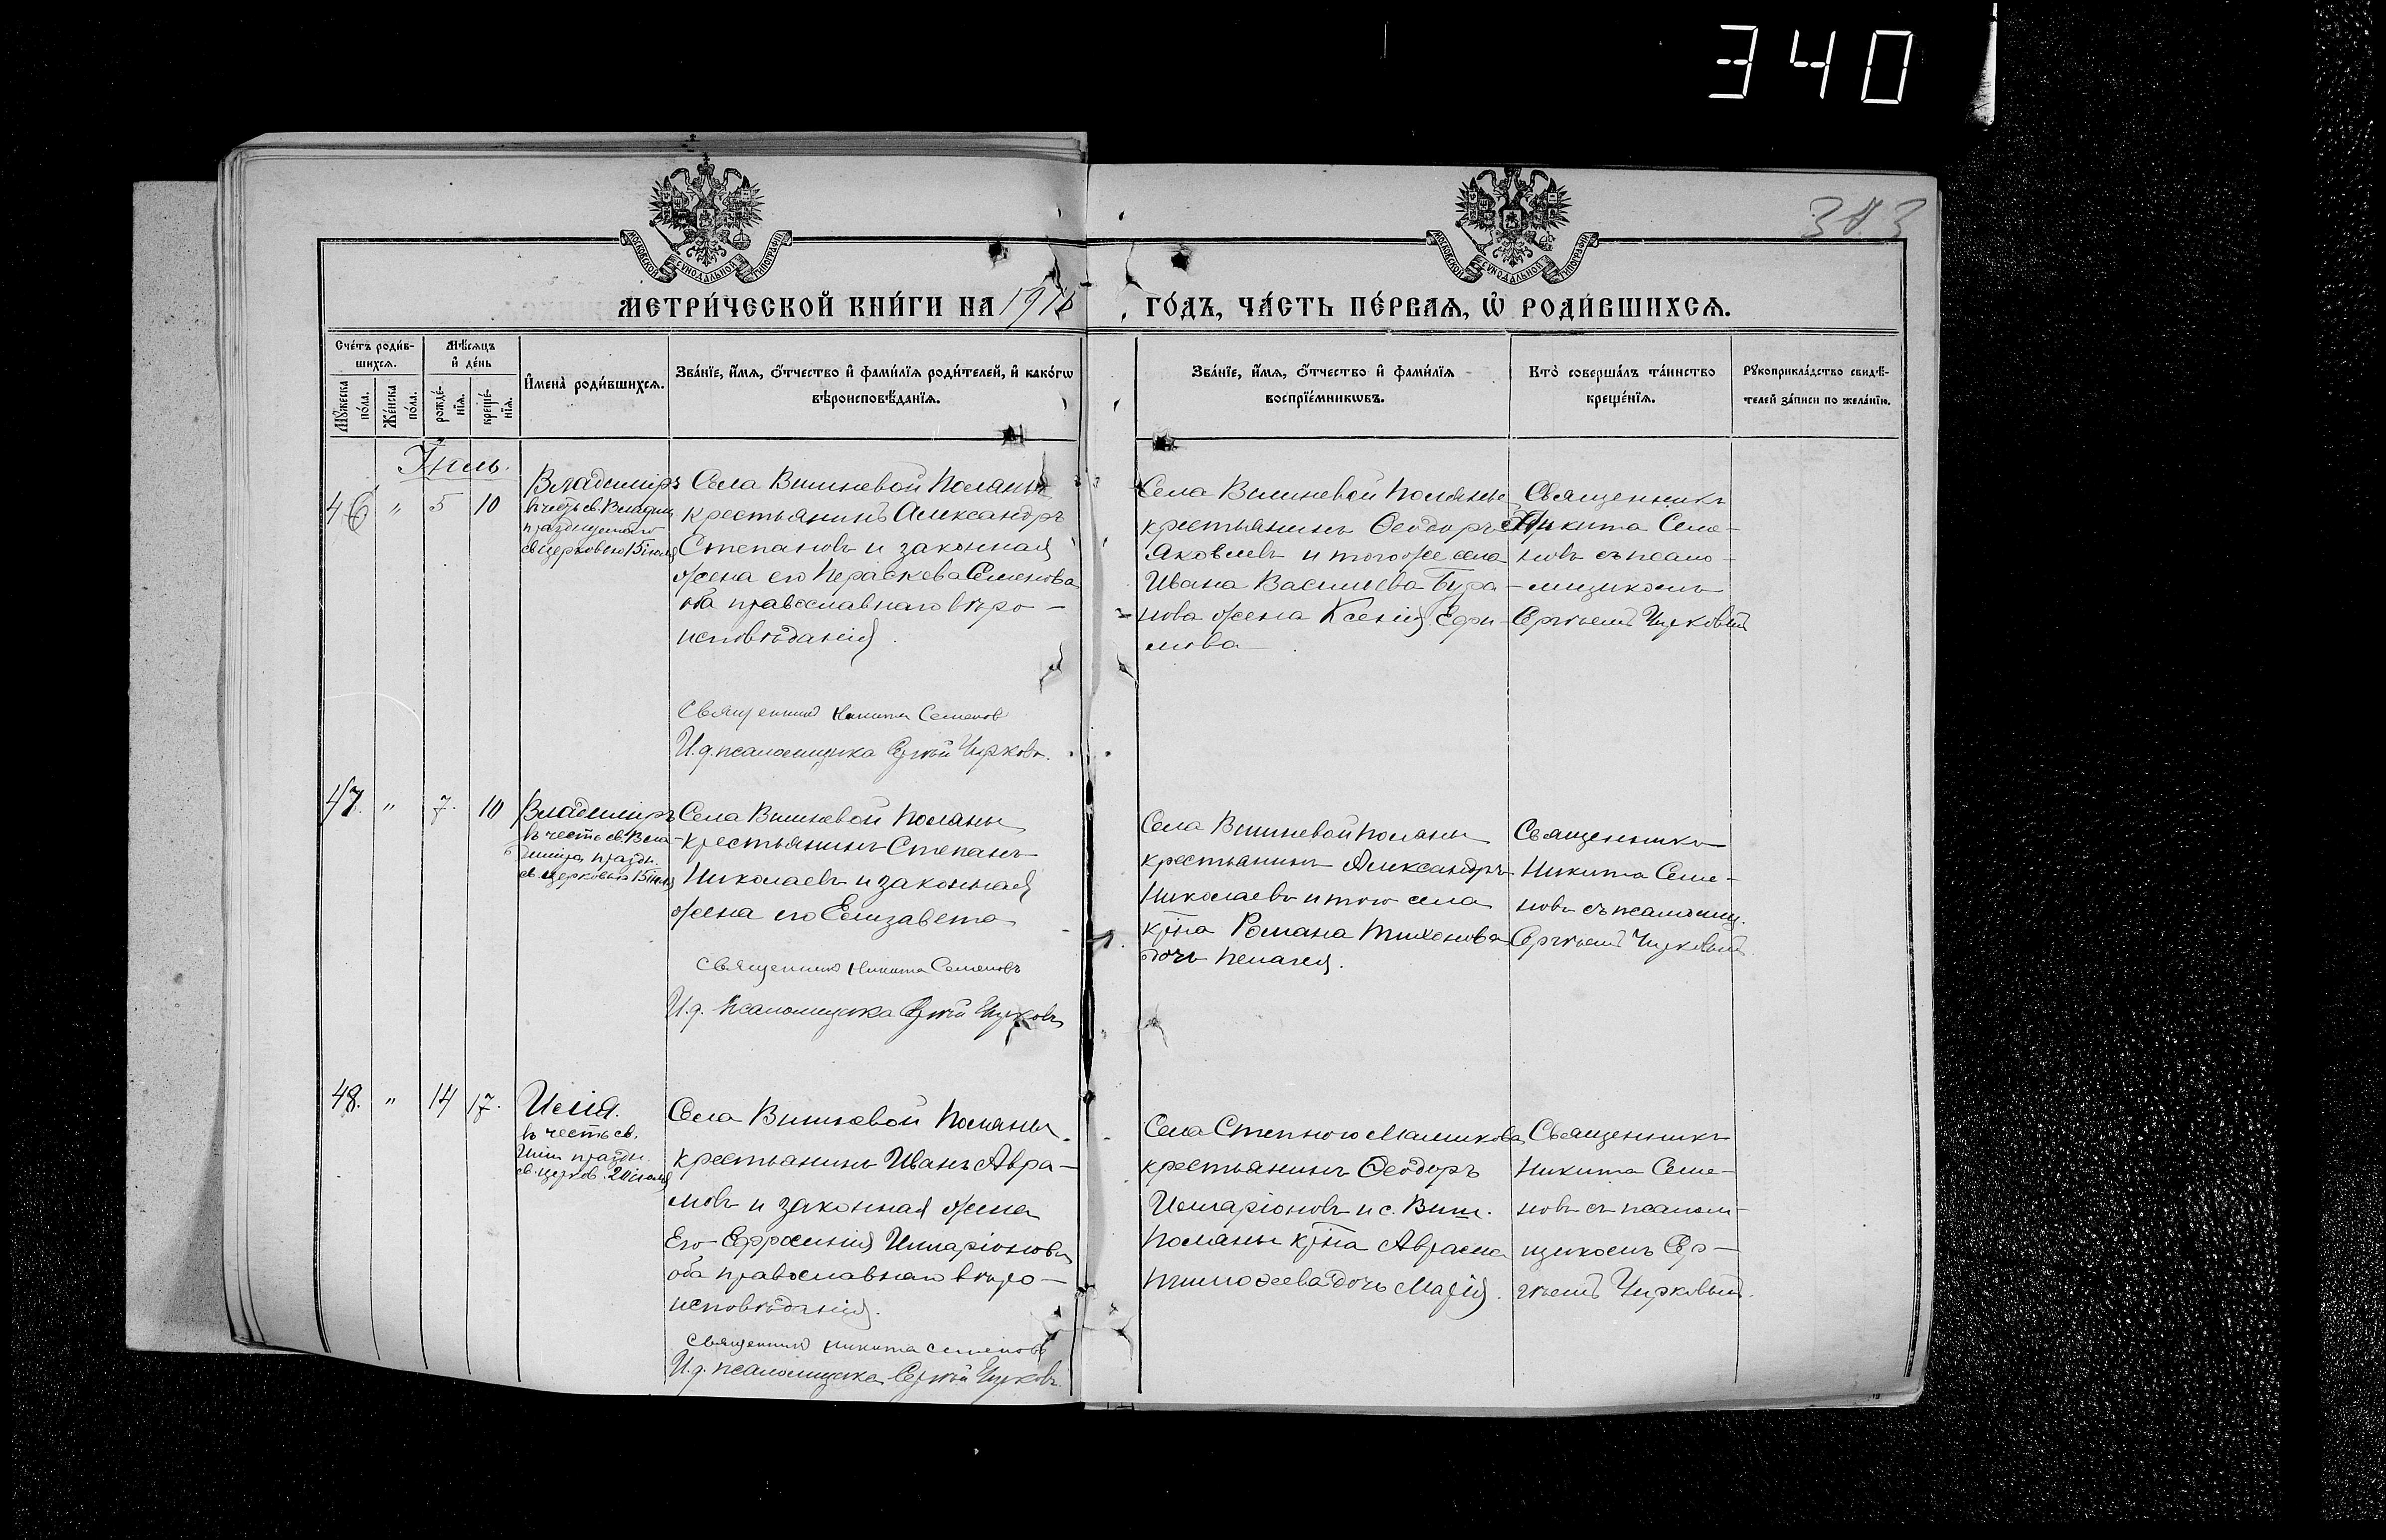 340
383
МОСКОВСКОЙ СУНОДАЛЬНОЙ ТИПОГРАФІИ
МОСКОВСКОЙ СУНОДАЛЬНОЙ ТИПОГРАФІИ
МЕТРИ́ЧЕСКОЙ КНИ́ГИ НА
ГО́ДЪ, ЧА́СТЬ ПЕ́РВАЯ, Ѿ РОДИ́ВШИХСЯ.
Сче́тъ роди́в-
шихся.
Мѣсяцъ
и҆ де́нь
Мꙋ́жеска
по́ла.
Же́нска
по́ла.
рожде́-
нїя.
креще́-
нїя.
И҆мена̀ роди́вшихся.
Зва́нїе, и҆́мя, ѻ҆́тчество и҆ фами́лїя роди́телей, и҆ како́гѡ
вѣроисповѣ́данїя.
Зва́нїе, и҆́мя, ѻ҆́тчество и҆ фами́лїя
воспрїе́мникѡвъ.
Кто̀ соверша́лъ та́инство
креще́нїя.
Рꙋкоприкла́дство свидѣ́-
телей за́писи по жела́нїю.
Іюль.
46 " 5 10
Владиміръ
въ честь св. Владим
празднуемаго
св церковью 15 іюля
Села Вишневой Поляны
крестьянинъ Александръ
Степановъ и законная
жена его Параскева Семенова
оба православнаго вѣро-
исповѣданія.
Священник Никита Семенов
И.д. псаломщика Сергѣй Чирковъ.
Села Вишневой Поляны
крестьянинъ Ѳеодоръ
Яковлевъ и того же села
Ивана Васильева Бура-
нова жена Ксенія Ефи-
мова
Священникъ
Никита Семе-
новъ съ псало-
мщикомъ
Сергѣемъ Чирковымъ
47. " 7. 10
Владиміръ
въ честь св. Вла-
диміра, праздн.
св. церковью 15 іюля
Села Вишневой Поляны
крестьянинъ Степанъ
Николаевъ и законная
жена его Елизавета
Священник Никита Семеновъ
И.д. псаломщика Сергѣй Чирковъ
Села Вишневой Поляны
крестьянинъ Александръ
Николаевъ и того села
кр͠на Романа Тихонова
дочь Пелагея.
Священникъ
Никита Семе-
новъ съ псаломщ.
Сергѣемъ Чирковымъ
48. " 14 17.
Илія.
въ честь св.
Иліи праздн.
св. церков. 20 іюля
Села Вишневой Поляны
крестьянинъ Иванъ Авра-
мовъ и законная жена
его Ефросинія Илларіонова
оба православнаго вѣро-
исповѣданія.
Священник Никита Семеновъ
И.д. псаломщика Сергѣй Чирковъ.
Села Степного
крестьянинъ Ѳеодоръ
Илларіоновъ и с. Виш.
Поляны кр͠на Аврама
Тимоѳеева дочь Марія.
Священникъ
Никита Семе-
новъ съ псалом-
щикомъ Сер-
гѣемъ Чирковымъ.